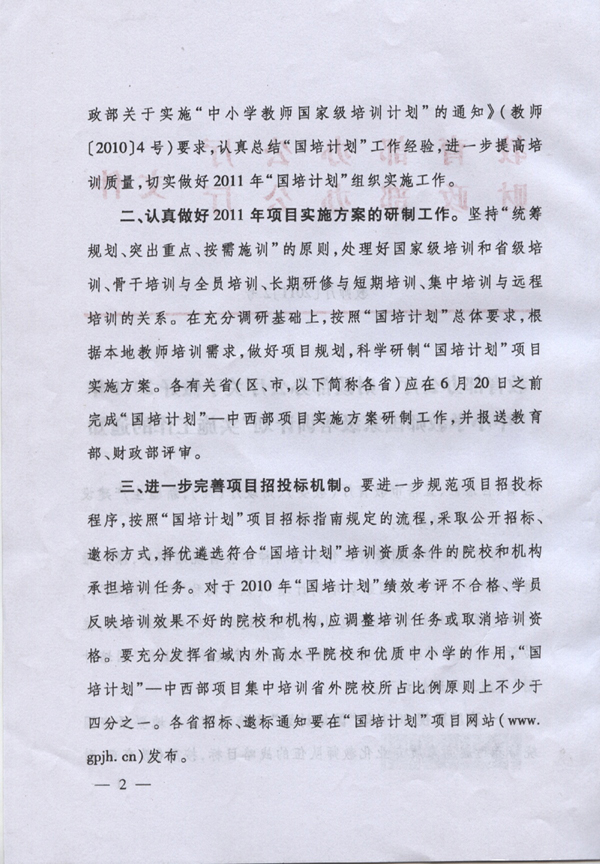 政部关于实施“中小学教师国家级培训计划”的通知》(教师
〔2010〕4号)要求,认真总结“国培计划”工作经验,进一步提高培
训质量,切实做好2011年“国培计划”组织实施工作。
二、认真做好2011年项目实施方案的研制工作。坚持“统筹
规划、突出重点、按需施训”的原则,处理好国家级培训和省级培
训、骨干培训与全员培训、长期研修与短期培训、集中培训与远程
培训的关系。在充分调研基础上,按照“国培计划”总体要求,根
据本地教师培训需求,做好项目规划,科学研制“国培计划”项目
实施方案。各有关省(区、市,以下简称各省)应在6月20日之前
完成“国培计划”—中西部项目实施方案研制工作,并报送教育
部、财政部评审。
三、进一步完善项目招投标机制。要进一步规范项目招投标
程序,按照“国培计划”项目招标指南规定的流程,采取公开招标、
邀标方式,择优遴选符合“国培计划”培训资质条件的院校和机构
承担培训任务。对于2010年“国培计划”绩效考评不合格、学员
反映培训效果不好的院校和机构,应调整培训任务或取消培训资
格。要充分发挥省域内外高水平院校和优质中小学的作用,“国
培计划”—中西部项目集中培训省外院校所占比例原则上不少于
四分之一。各省招标、邀标通知要在“国培计划”项目网站(www.
gpjh.cn)发布。
— 2 —